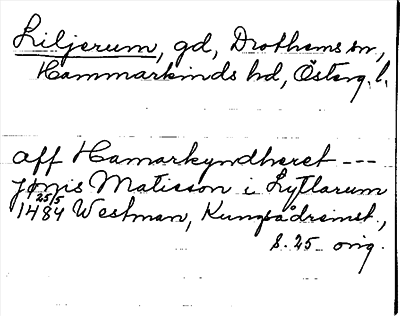 Liljerum, gd, Drothems sn,
Hammarkinds hd, Österg. l.
aff Hamarkyndheret ---
jönis Matisson i Lytlarum
1484 25/5 Westman, Kungsådrainst.,
s. 25 orig.